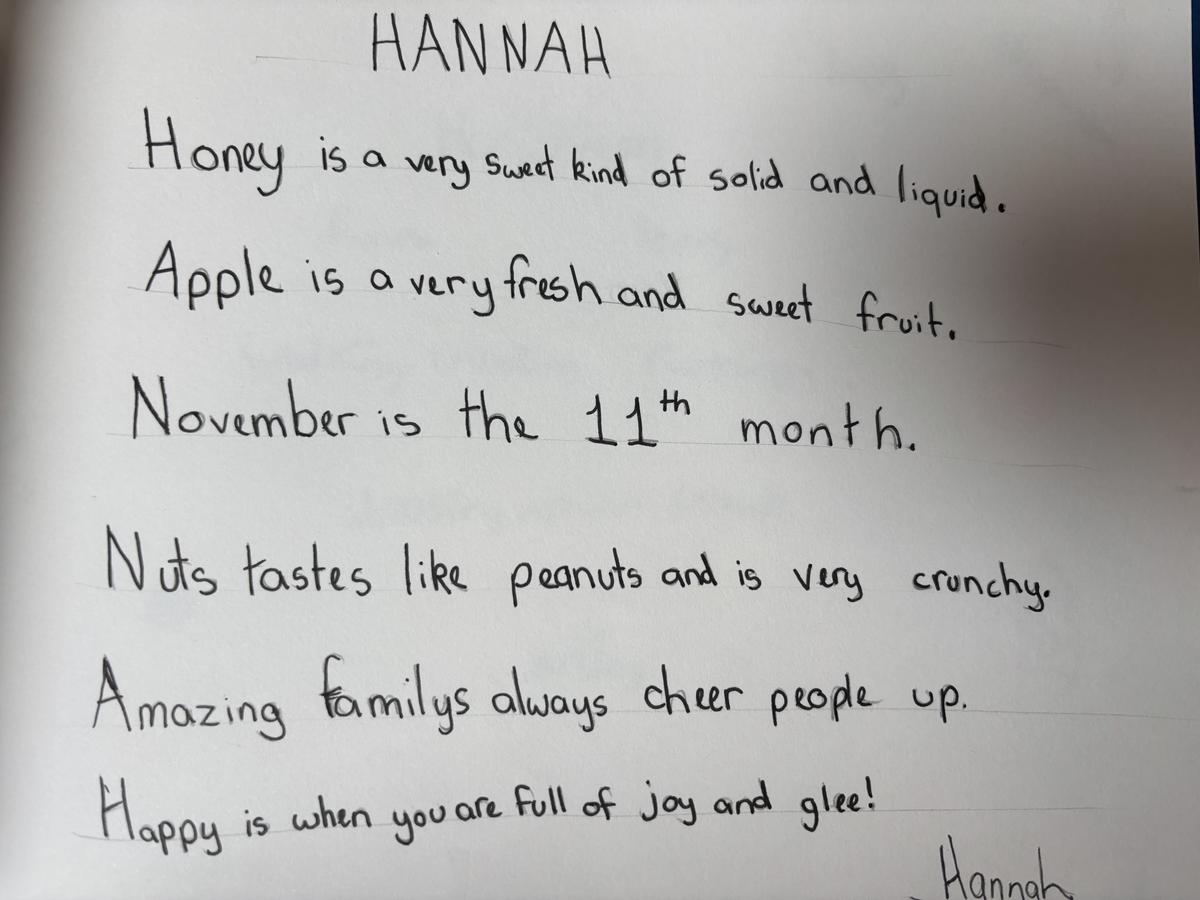 HANNAH
Honey is a very sweet kind of solid and liquid.
Apple is a very fresh and sweet fruit.
November is the 11th month.
Nuts tastes like peanuts and is very crunchy.
Amazing familys always cheer people up.
Happy is when you are full of joy and glee!
Hannah